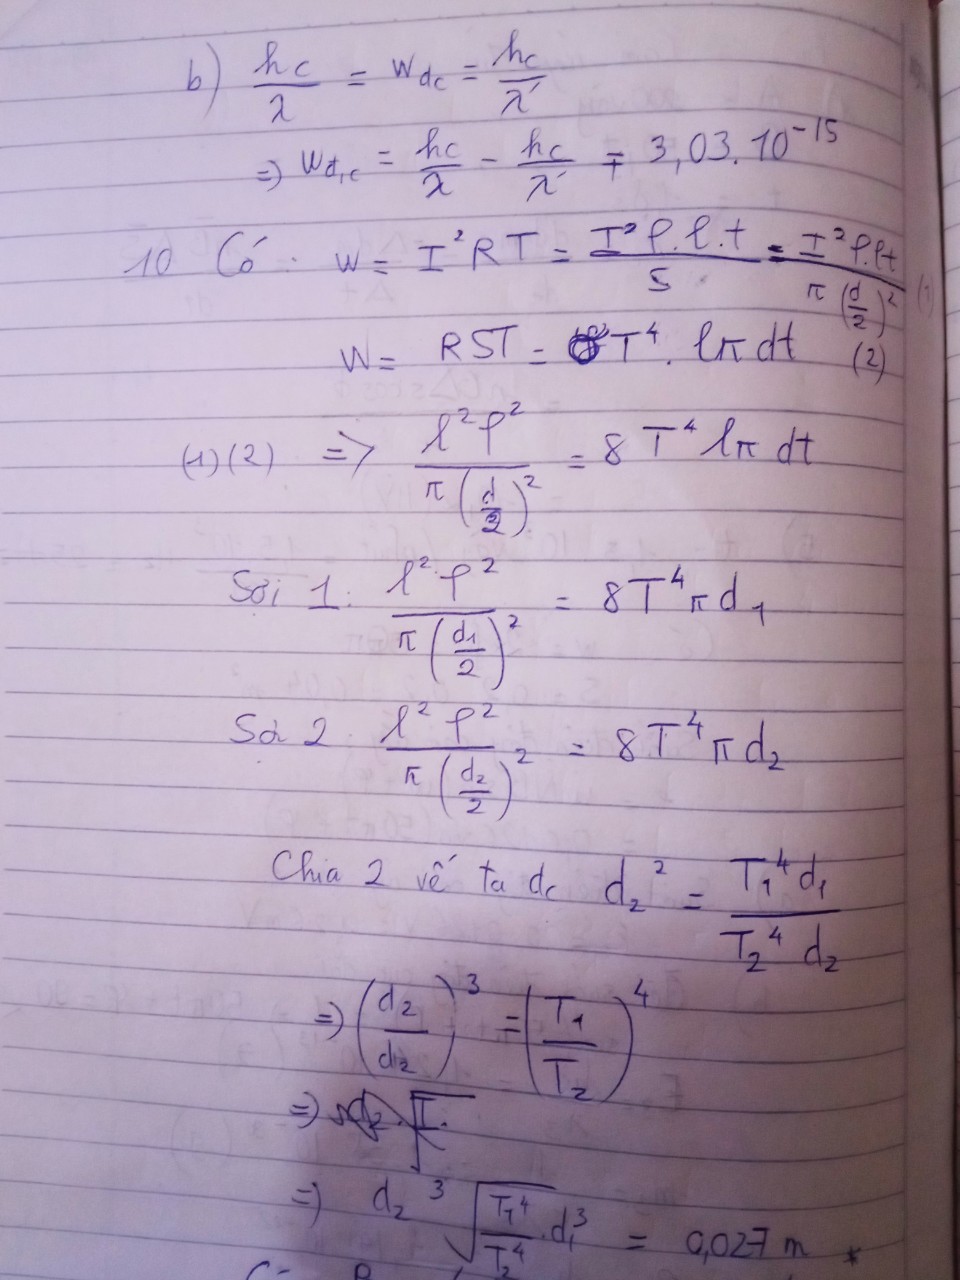 b) hc/λ = W dc = hc/λ'
=> W d,c = hc/λ - hc/λ' = 3,03.10^-15
10 Có: W = I²RT = I²ρ.l.t/S = I²ρ.lt/π(d/2)² (1)
W = RST = T⁴. lπdt (2)
(1)(2) => l²ρ²/π(d/2)² = 8T⁴lπdt
Sợi 1: l²ρ²/π(d₁/2)² = 8T⁴πd₁
Sợi 2 l²ρ²/π(d₂/2)² = 8T⁴πd₂
Chia 2 vế ta dc d₂² = T₁⁴d₁/T₂⁴d₂
=> (d₂/d₂)³ = (T₁/T₂)⁴
=> d₂ ³√(T₁⁴/T₂⁴.d₁³) = 0,027 m